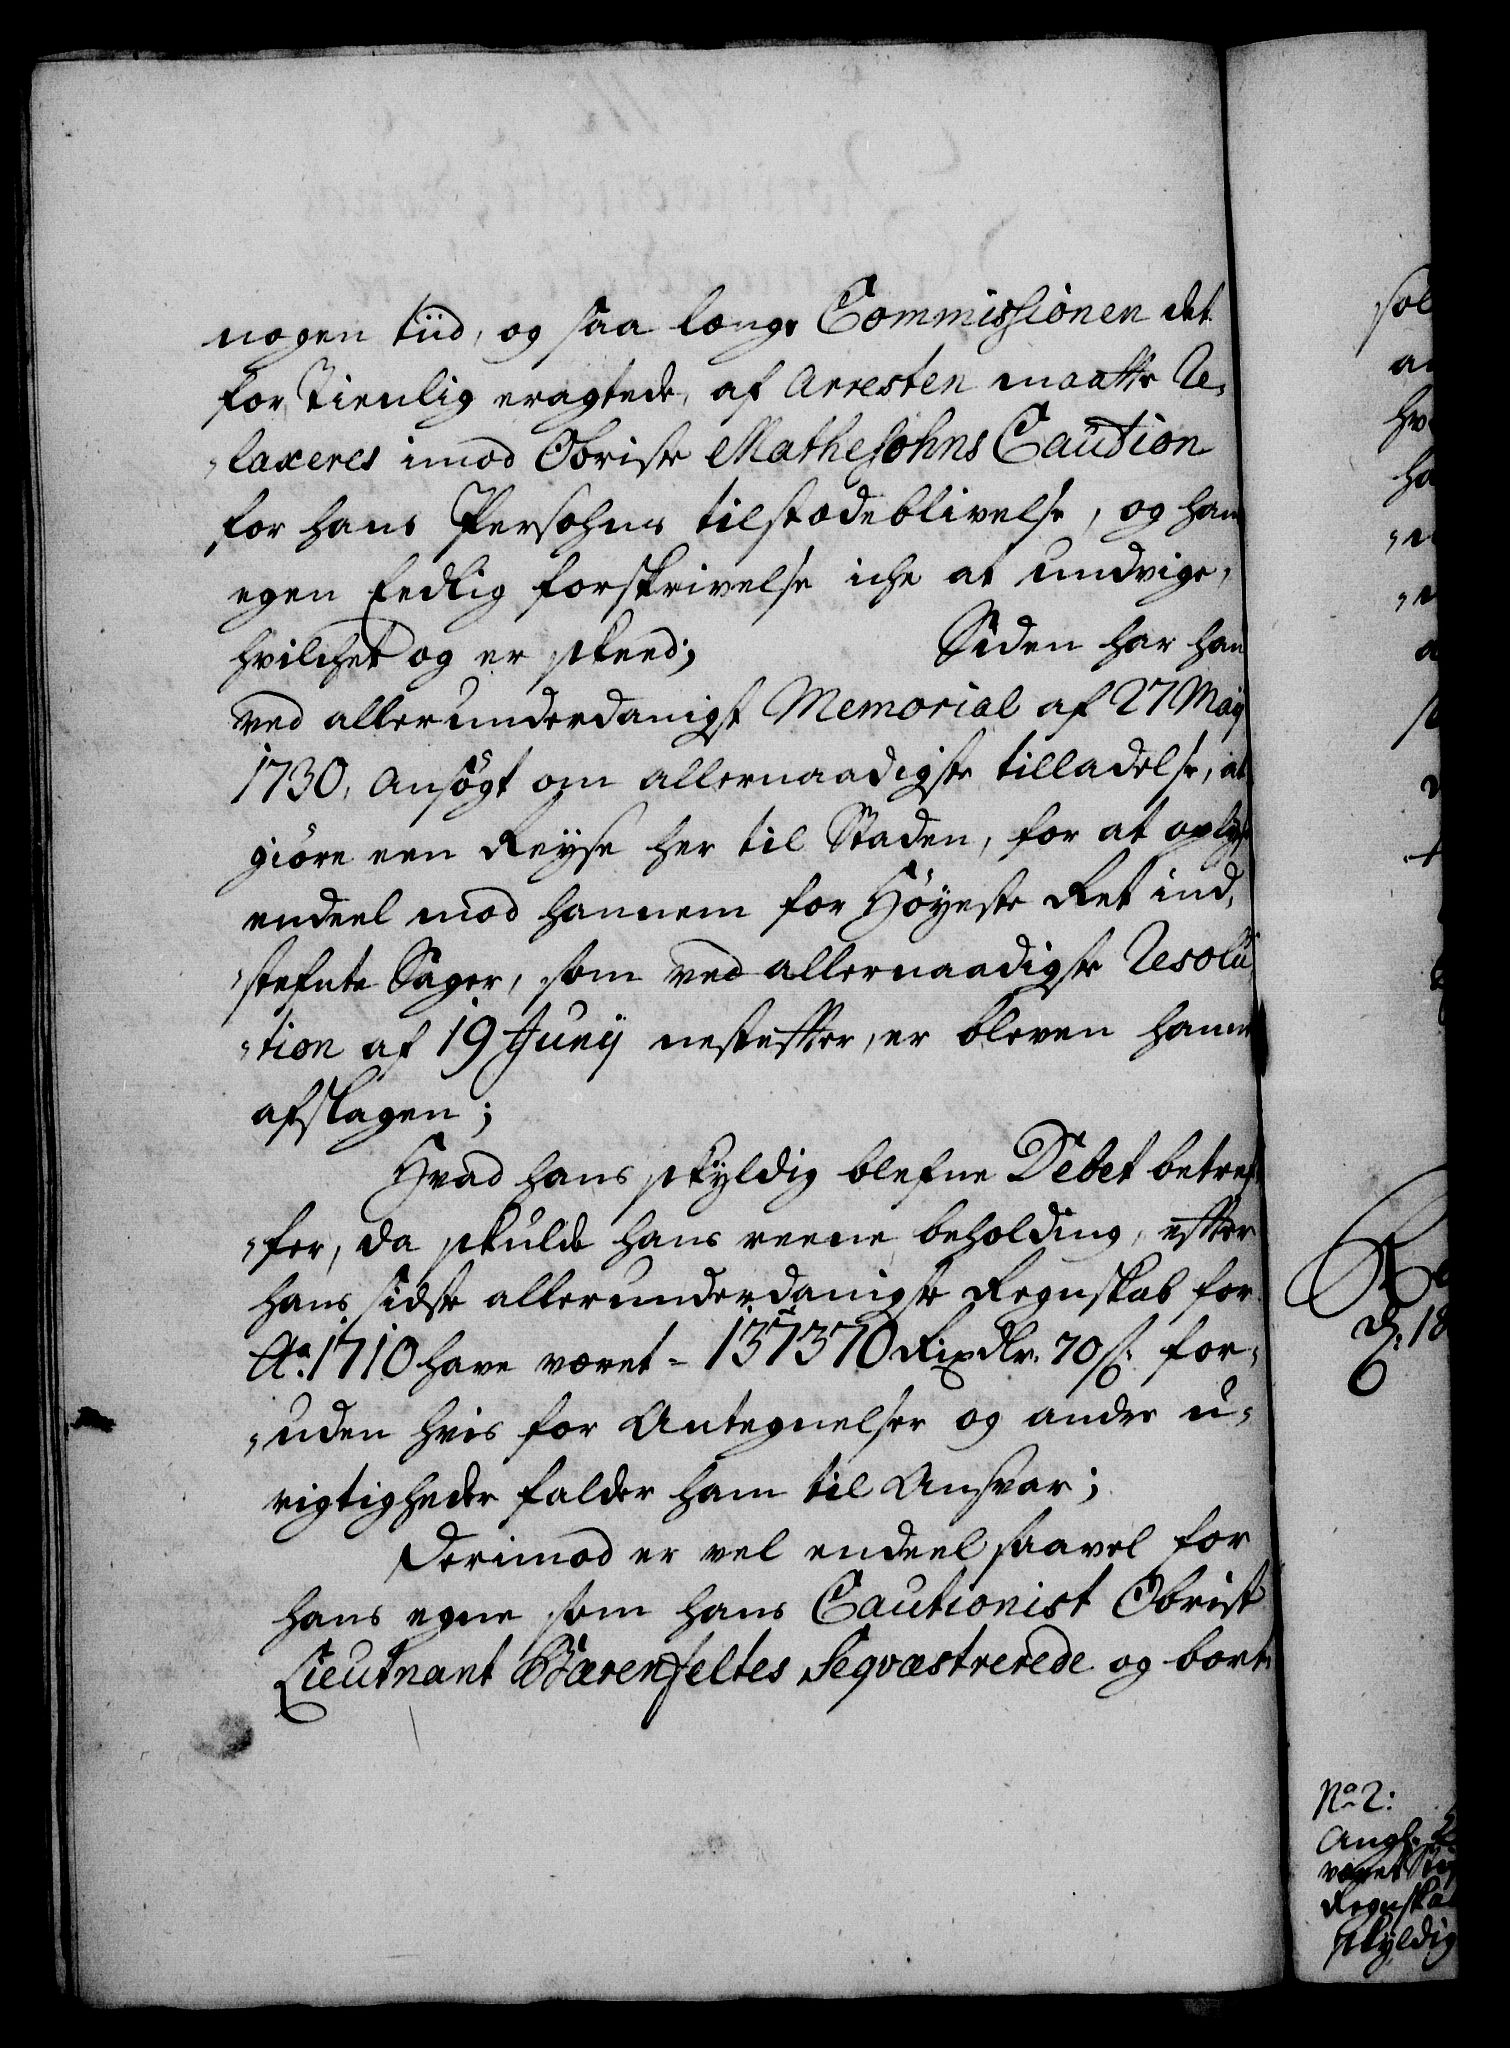 nogen tiid, og saa lenge Commissionen det
for Tienlig eragtede, af Arresten maatte Re-
„laxeres imod Obriste Mathesohns Caution
for hans Persohns tilstædeblivelse, og hans
egen Eedlig forskrivelse iche at undvige,
hvilchet og er skeed; Siden har han
ved allerunderdanigst Memorial af 27 Maij
1730, ansøgt om allernaadigste tilladelse, at
giøre een Reyse her til Staden, for at oplyse
endeel mod hannem for Høyeste Ret ind„
„stefnte Sager, som ved allernaadigste Resolu
„tion af 19 Junij nestefter, er bleven hannem
afslagen;
Hvad hans skyldig blefne Debet betref„
„fer, da skulde hans reene beholding, efter
hans sidste allerunderdanigste Regnskab for
Ao. 1710 have været - 137370 Rixdlr. 70 ß. for„
„uden hvis for Antegnelser og andre u„
rigtigheder falder ham til Ansvar;
Derimod er vel endeel saavel for
hans egne som hans Cautionist Obrist
Lieutnant Bærenfeltes Seqvæstrerede og bort
No 2: